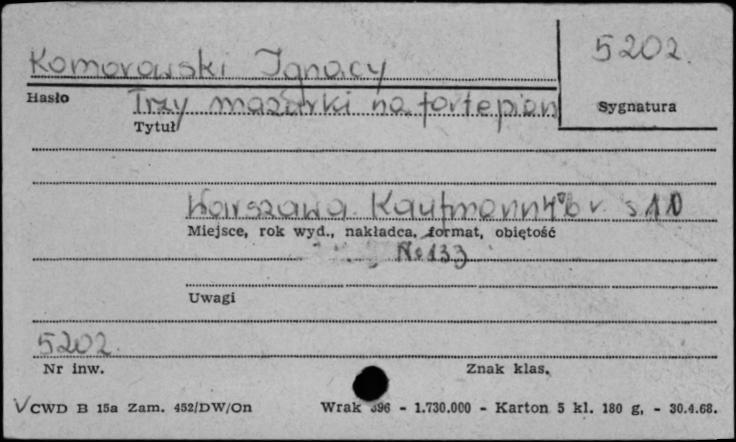 5202.
Komorowski Ignacy
Hasło
Trzy mazurki na fortepian
Sygnatura
Tytuł
Warszawa. Kaufmann 4° b r. s 10
Miejsce, rok wyd., nakładca, format, objętość
No 133
Uwagi
5202.
Nr inw.
Znak klas.
CWD B 15a Zam. 452/DW/On Wrak 396 - 1.730.000 - Karton 5 kl. 180 g. - 30.4.68.